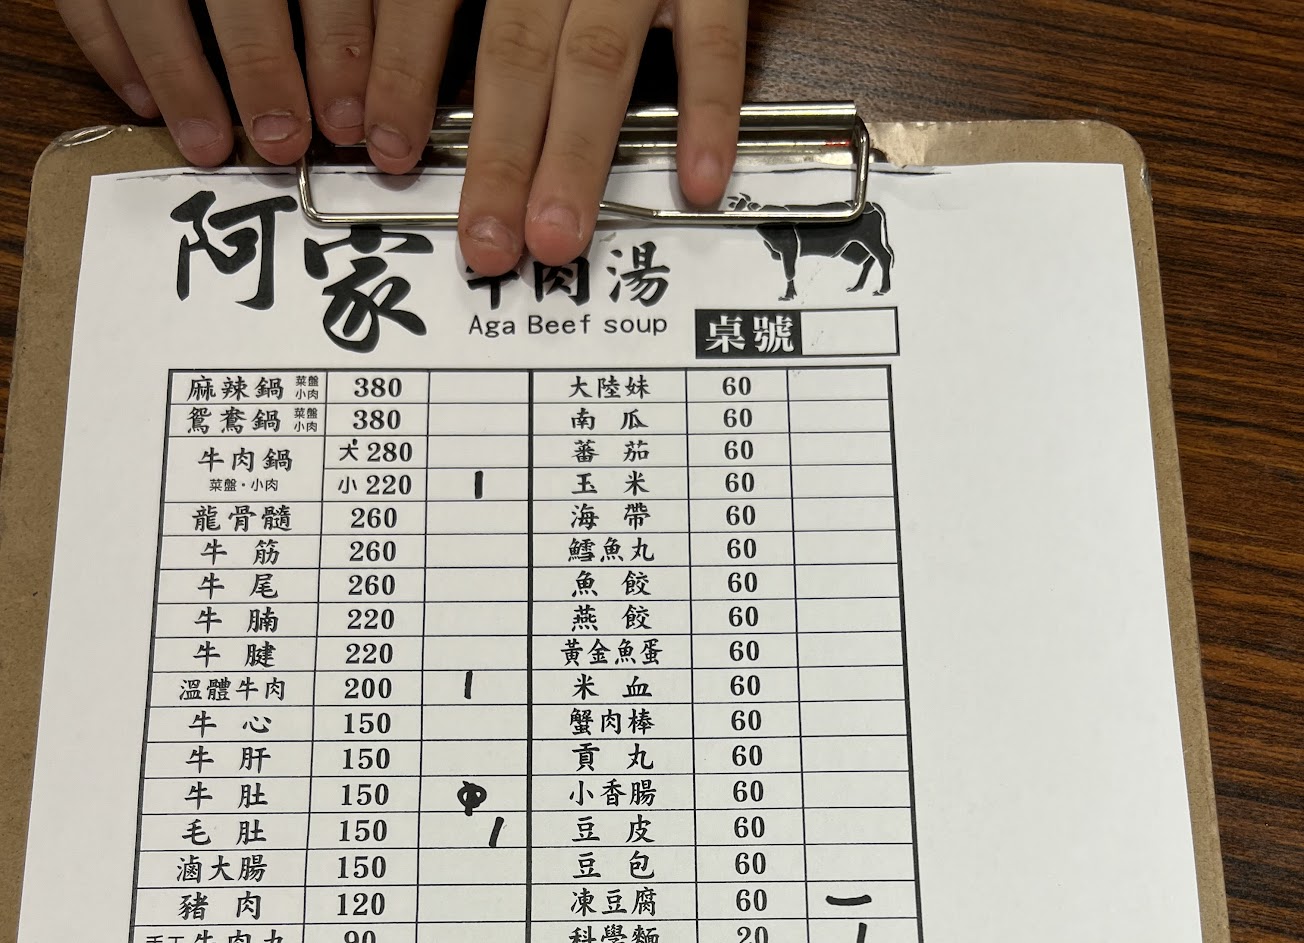 阿家 牛肉湯
Aga Beef soup
桌號
麻辣鍋 菜盤 小肉 380 大陸妹 60
鴛鴦鍋 菜盤 小肉 380 南瓜 60
牛肉鍋 大 280 蕃茄 60
菜盤・小肉 小 220 玉米 60
龍骨髓 260 海帶 60
牛筋 260 鱈魚丸 60
牛尾 260 魚餃 60
牛腩 220 燕餃 60
牛腱 220 黃金魚蛋 60
溫體牛肉 200 米血 60
牛心 150 蟹肉棒 60
牛肝 150 貢丸 60
牛肚 150 小香腸 60
毛肚 150 豆皮 60
滷大腸 150 豆包 60
豬肉 120 凍豆腐 60 一
手工牛肉丸 90 科學麵 20